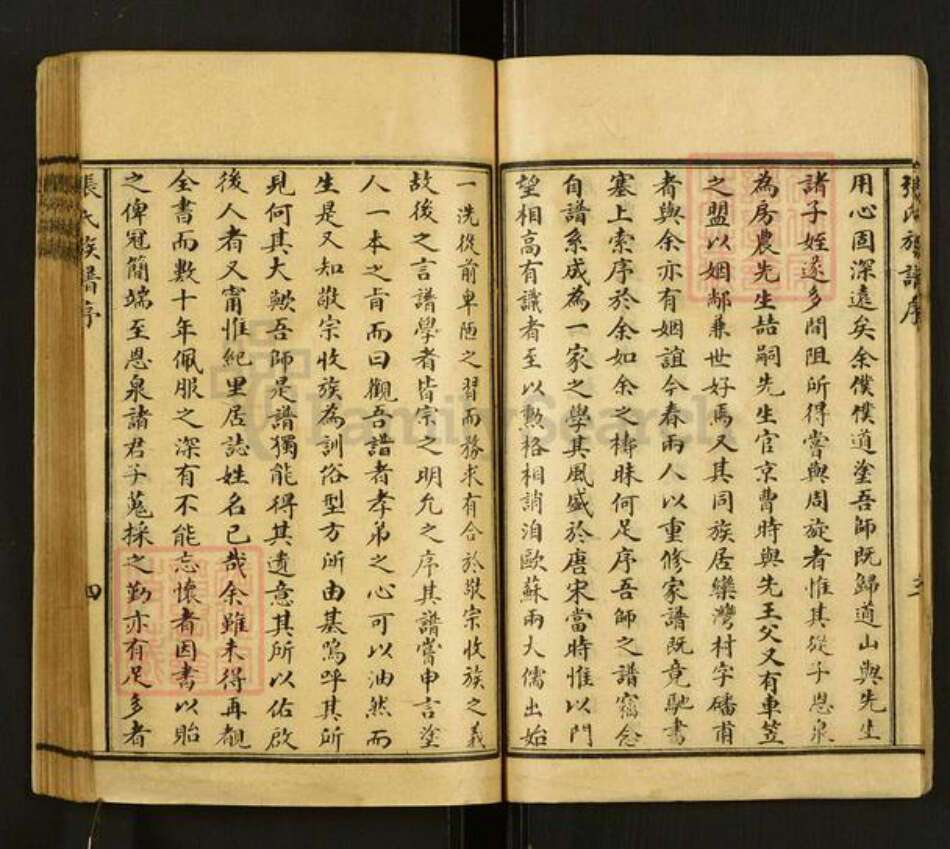 張氏族譜序
用心固深遠矣余僕僕道塗吾師既歸道山與先生
諸子姪遂多間阻所得嘗與周旋者惟其從子恩泉
為房農先生喆嗣先生官京曹時與先王父又有車笠
之盟以姻鄰兼世好焉又其同族居欒灣村字磻甫
者與余亦有姻誼今春兩人以重修家譜既竟馳書
塞上索序於余如余之檮昧何足序吾師之譜竊念
自譜系成為一家之學其風盛於唐宋當時惟以門
望相高有識者至以勲格相誚洎歐蘇兩大儒出始
一洗從前卑陋之習而務求有合於敬宗收族之義
故後之言譜學者皆宗之明允之序其譜嘗申言塗
人一本之旨而曰觀吾譜者孝弟之心可以油然而
生是又知敬宗收族為訓俗型方所由基嗚呼其所
見何其大歟吾師是譜獨能得其遺意其所以佑啟
後人者又甯惟紀里居誌姓名已哉余雖未得再覩
全書而數十年佩服之深有不能忘懷者因書以貽
之俾冠簡端至恩泉諸君子蒐採之勤亦有足多者
張氏族譜序
四
FamilySearch